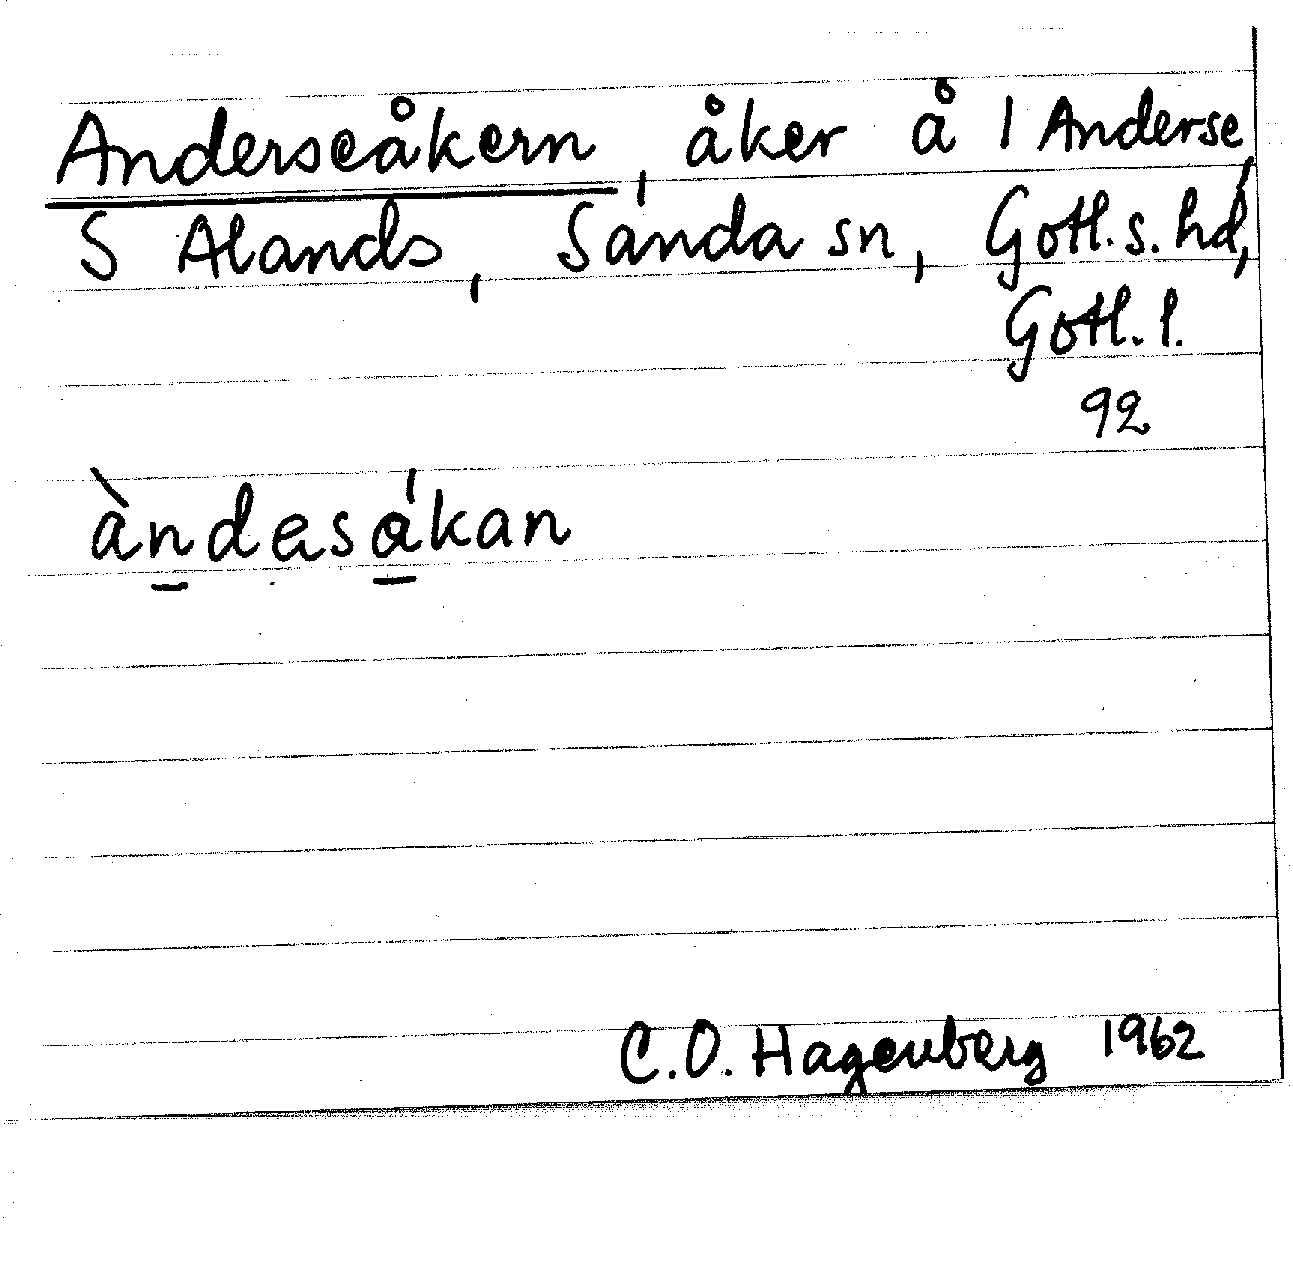 Anderseåkern, åker å 1 Anderse,
S Alands, Sanda sn, Gotl. s. hd,
Gotl. l.
92
àndesákan
C.O. Hagenberg 1962